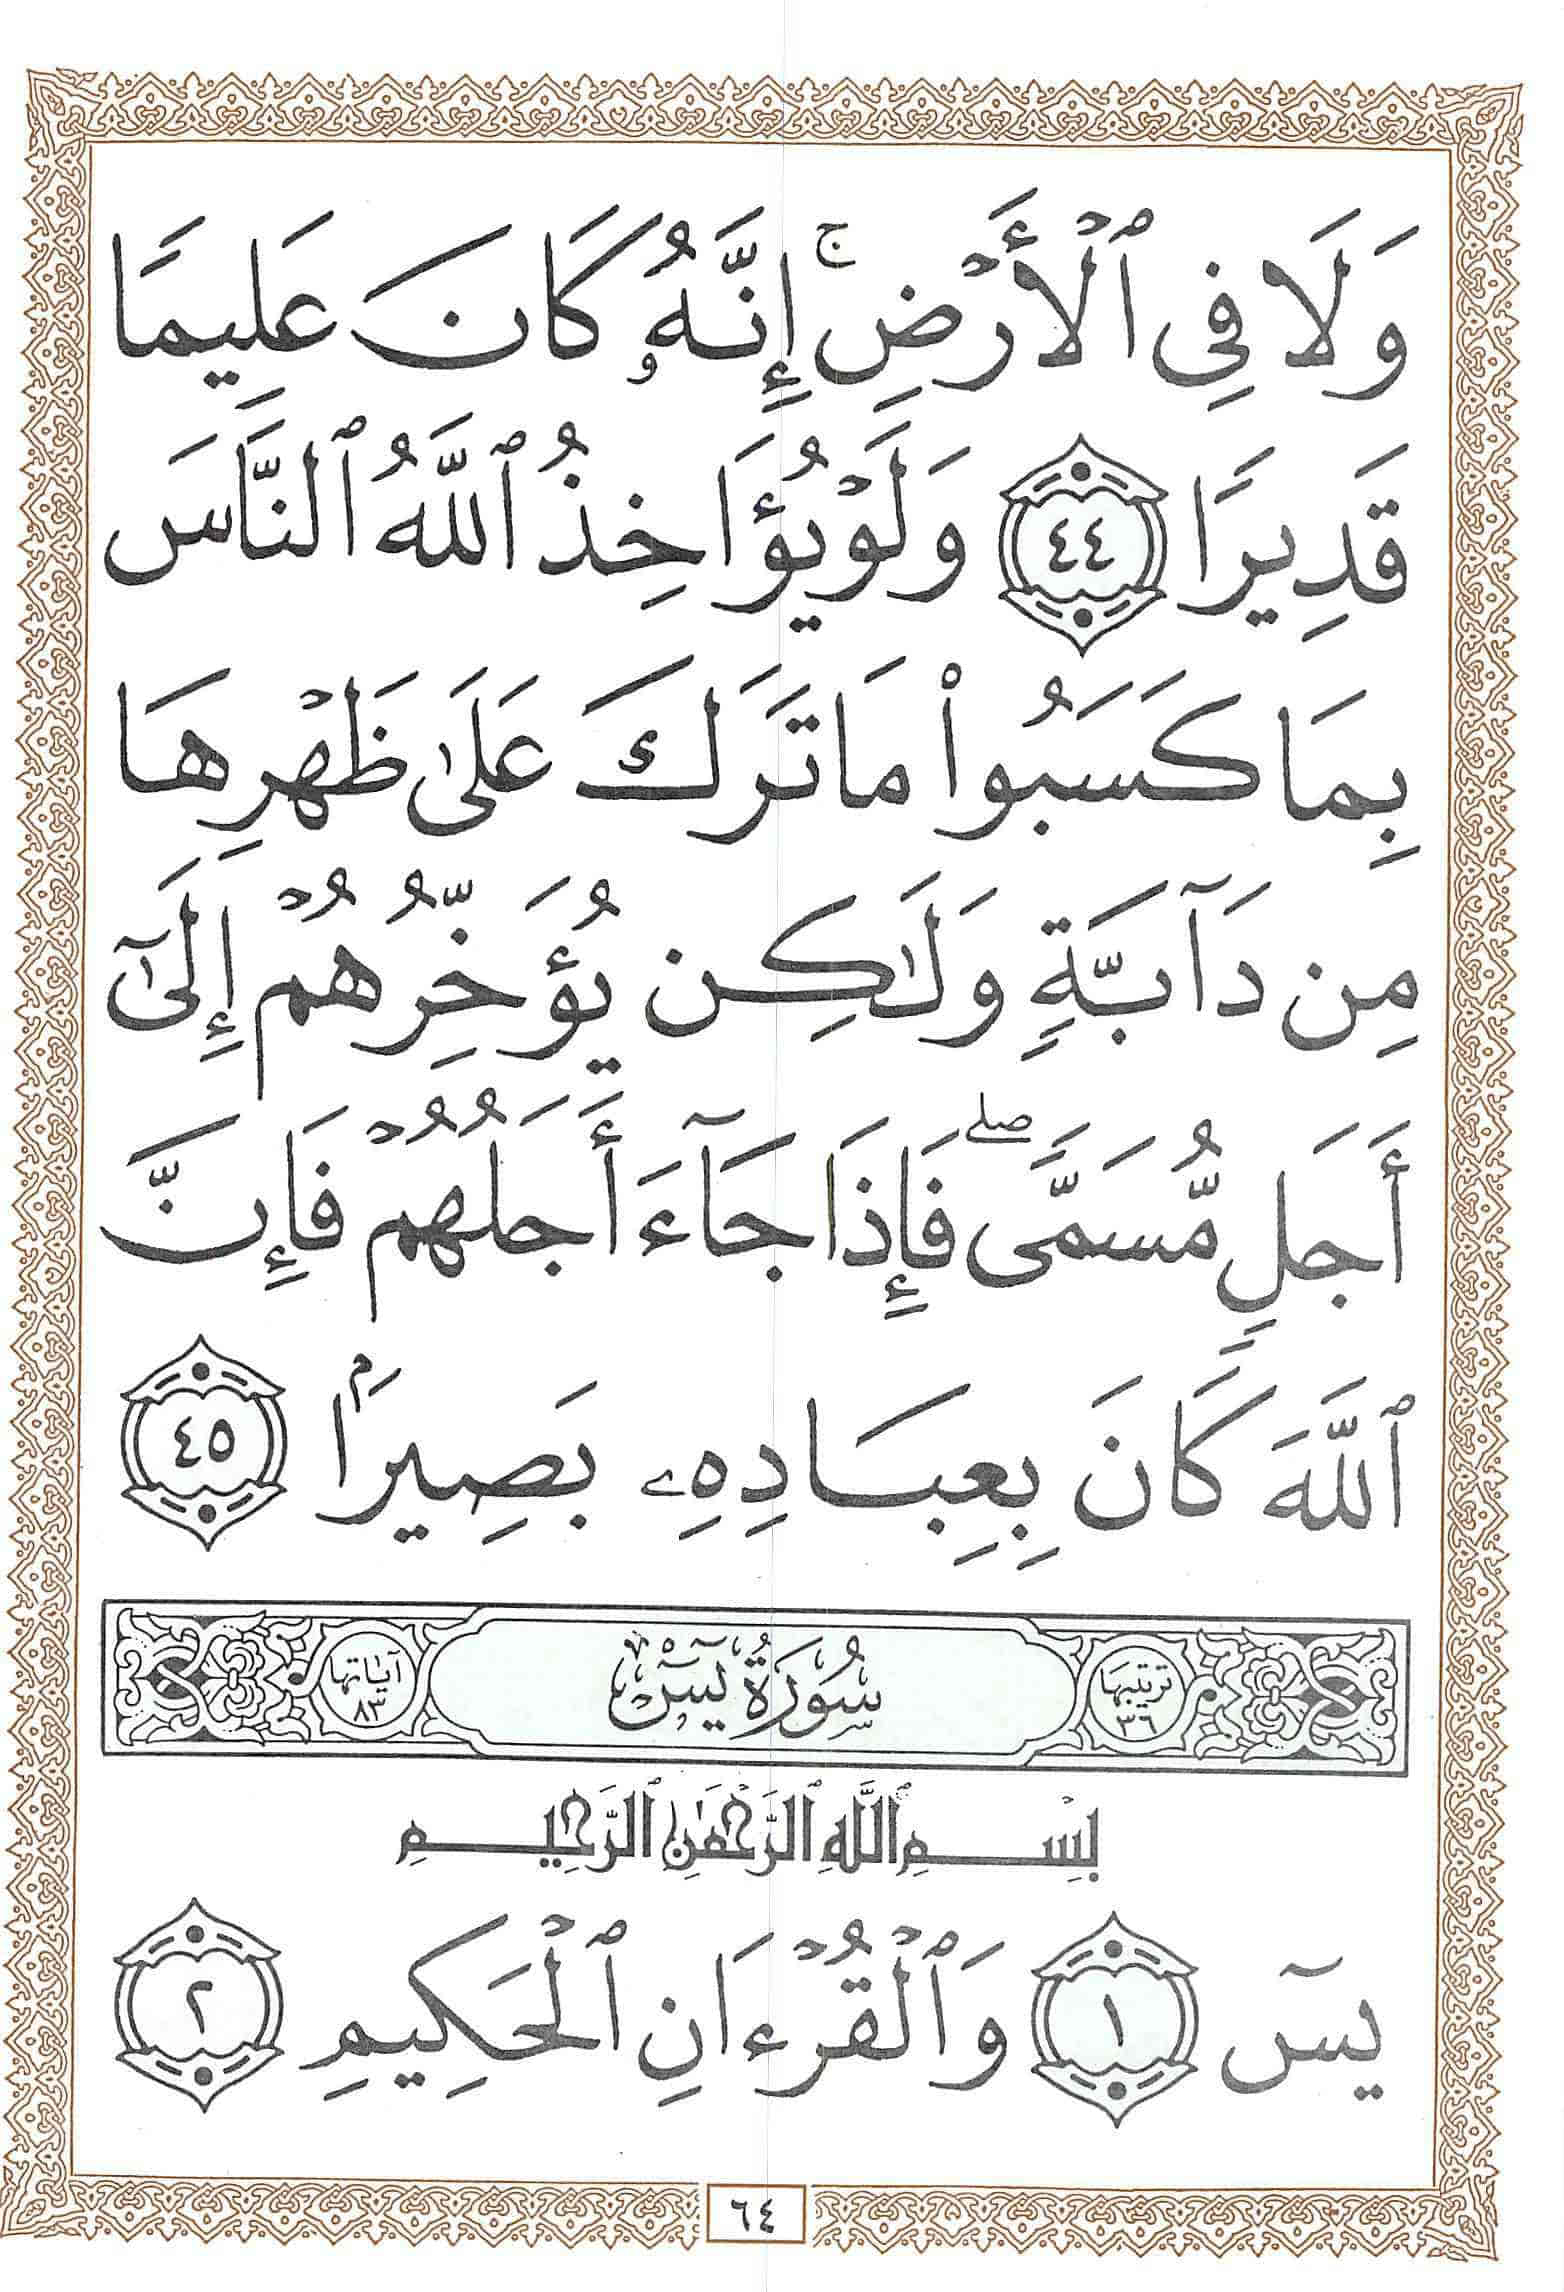 وَلَا فِى ٱلْأَرْضِ ۚ إِنَّهُۥ كَانَ عَلِيمًا
قَدِيرًا ٤٤ وَلَوْ يُؤَاخِذُ ٱللَّهُ ٱلنَّاسَ
بِمَا كَسَبُوا۟ مَا تَرَكَ عَلَىٰ ظَهْرِهَا
مِن دَآبَّةٍ وَلَٰكِن يُؤَخِّرُهُمْ إِلَىٰٓ
أَجَلٍ مُّسَمًّى ۖ فَإِذَا جَآءَ أَجَلُهُمْ فَإِنَّ
ٱللَّهَ كَانَ بِعِبَادِهِۦ بَصِيرًۢا ٤٥
ترتيبها ٣٦ سُورَةُ يسٓ آياتها ٨٣
بِسْمِ ٱللَّهِ ٱلرَّحْمَٰنِ ٱلرَّحِيمِ
يسٓ ١ وَٱلْقُرْءَانِ ٱلْحَكِيمِ ٢
٦٤